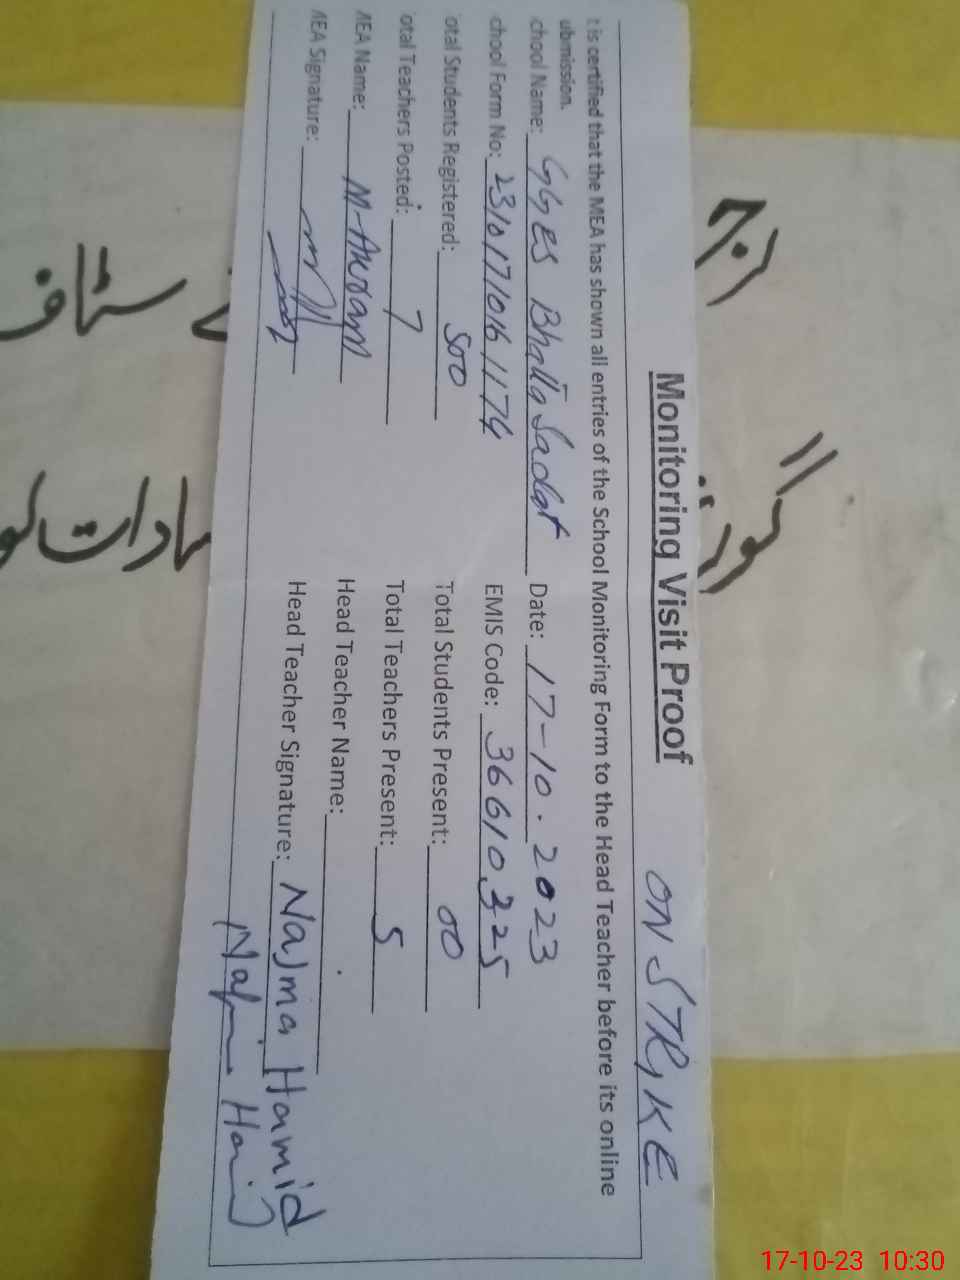 Monitoring Visit Proof
ON STRIKE
t is certified that the MEA has shown all entries of the School Monitoring Form to the Head Teacher before its online
ubmission.
chool Name: GGES Bhalla Sadat Date: 17-10-2023
chool Form No: EMIS Code: 36610325
otal Students Registered: 500 Total Students Present: 00
otal Teachers Posted: 7 Total Teachers Present: 5
MEA Name: M-Akram Head Teacher Name:
MEA Signature: Head Teacher Signature: Najma Hamid
سٹاف
سادات
17-10-23 10:30